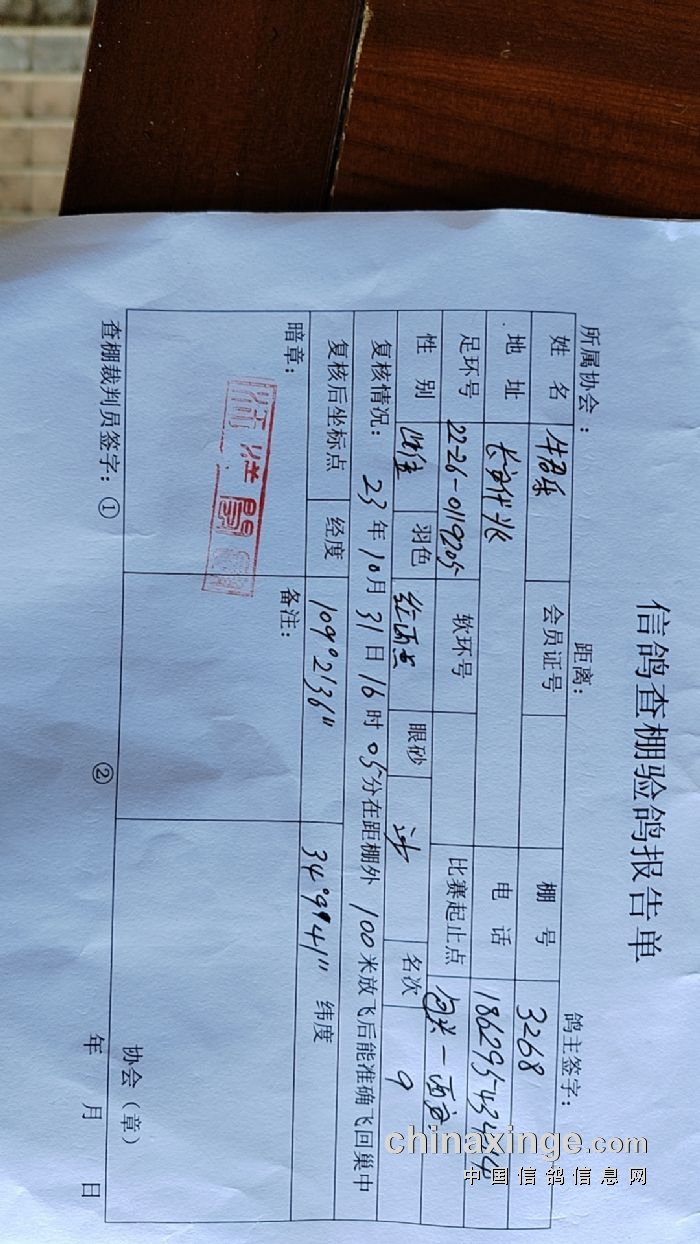 信鸽查棚验鸽报告单
所属协会： 距离： 鸽主签字：
姓名 牛君乐 会员证号 棚号 3268
地址 长安 电话
足环号 22-26-0119205 软环号 比赛起止点 包头一西安
性别 雄 羽色 红雨点 眼砂 沙 名次 9
复核情况： 23年10月31日16时05分在距棚外100米放飞后能准确飞回巢中
复核后坐标点 经度 109°2'36" 34°9'41" 纬度
暗章： 备注：
协会（章）
查棚裁判员签字：① ② 年 月 日
chinaxinge.com
中国信鸽信息网